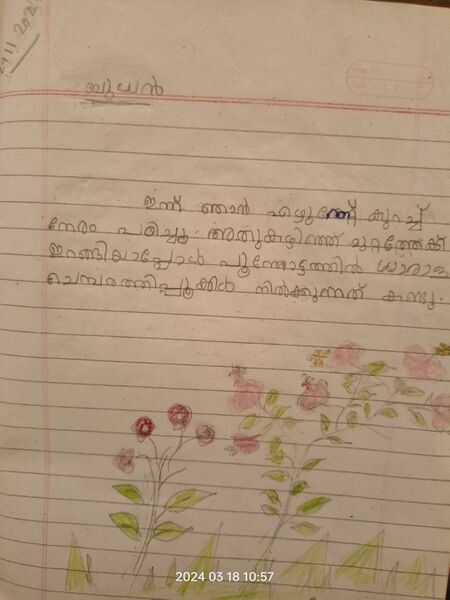 ബുധൻ
ഇന്ന് ഞാൻ എഴുന്നേറ്റ് കുറച്ച്
നേരം പഠിച്ചു. അതുകഴിഞ്ഞ് മുറ്റത്തേക്ക്
ഇറങ്ങിയപ്പോൾ പൂന്തോട്ടത്തിൽ ധാരാളം
ചെമ്പരത്തിപ്പൂക്കൾ നിൽക്കുന്നത് കണ്ടു.
2024 03 18 10:57